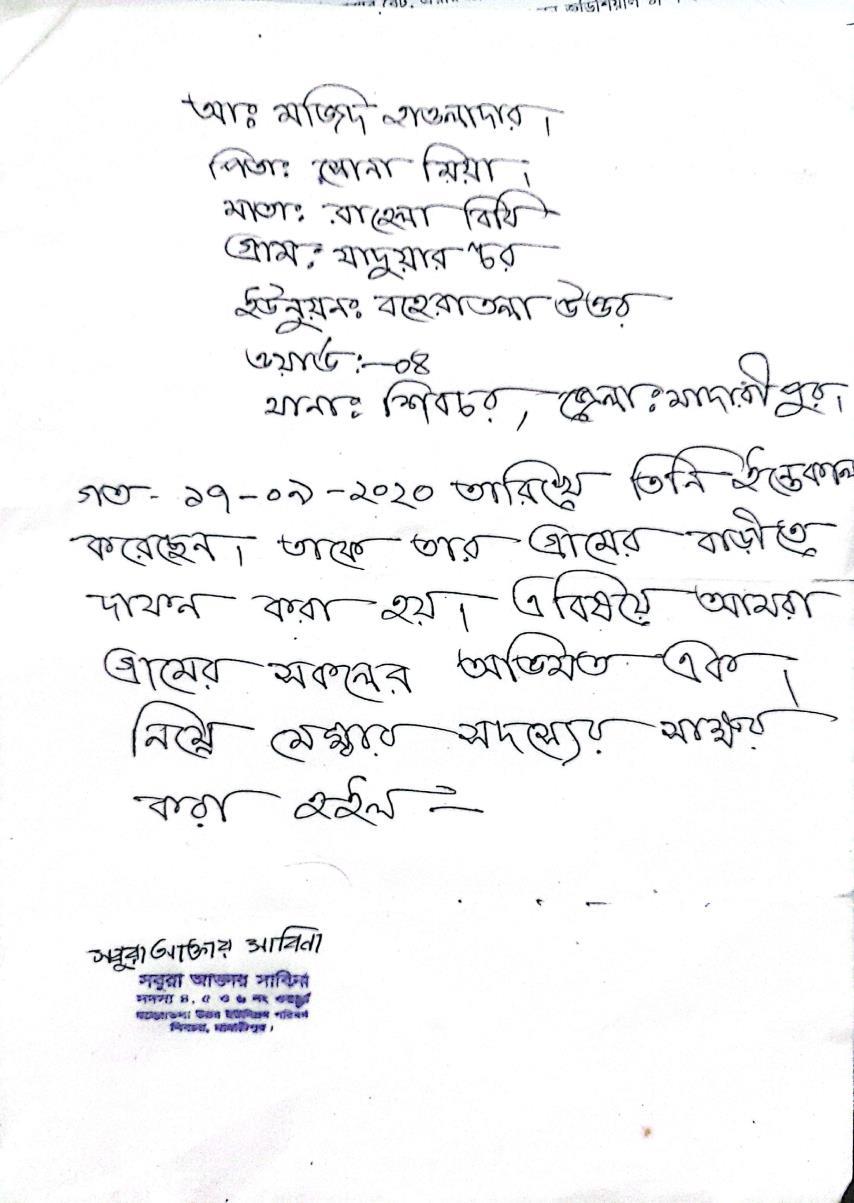 আঃ মজিদ হাওলাদার।
পিতাঃ সোনা মিয়া।
মাতাঃ রাহেলা বিবি
গ্রাম: যাদুয়ার চর
ইউনুয়নঃ বহেরাতলা উত্তর
ওয়ার্ড:-০৪
থানাঃ শিবচর, জেলাঃ মাদারীপুর।
গত- ১৭-০৯-২০২০ তারিখে তিনি ইন্তেকাল
করেছেন। তাকে তার গ্রামের বাড়ীতে
দাফন করা হয়। এ বিষয়ে আমরা
গ্রামের সকলের অভিমত এক।
নিম্নে মেম্বার সদস্যের সাক্ষর
করা হইল =
সবুরা আক্তার সাবিনা
সবুরা আক্তার সাবিনা
সদস্য ৪, ৫ ও ৬ নং ওয়ার্ড
বহেরাতলা উত্তর ইউনিয়ন পরিষদ
শিবচর, মাদারীপুর।